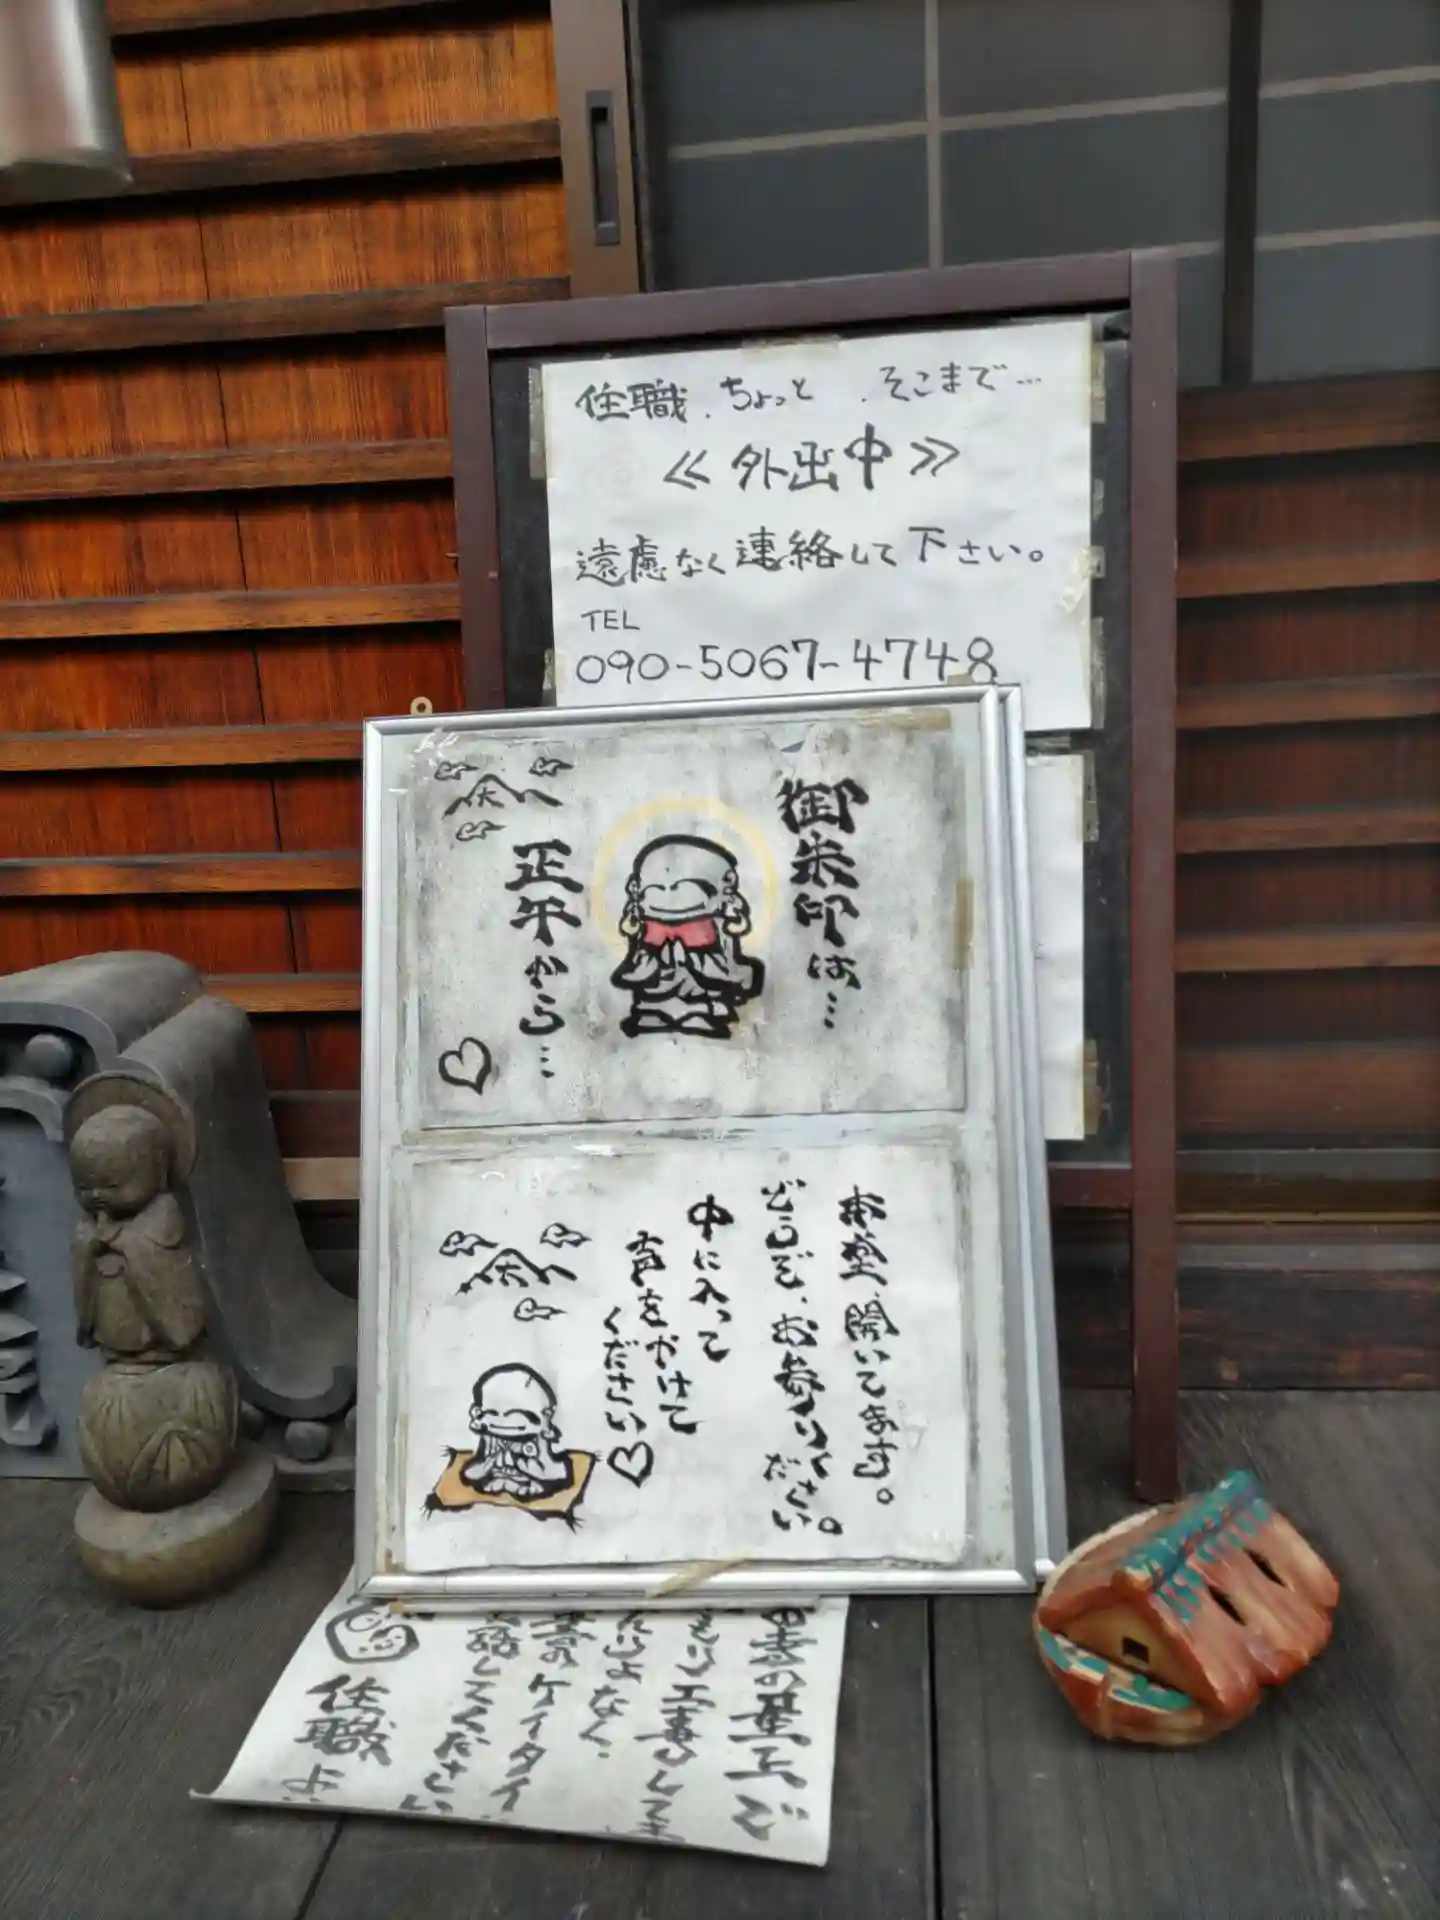 住職、ちょっと、そこまで…
≪外出中≫
遠慮なく連絡して下さい。
TEL
090-5067-4748
御朱印は…
正午から…
大
本堂、開いてます。
どうぞ、お参りください。
中に入って
声をかけて
ください
大
の屋上で
工事して
なく
のケイタイ
してください
住職